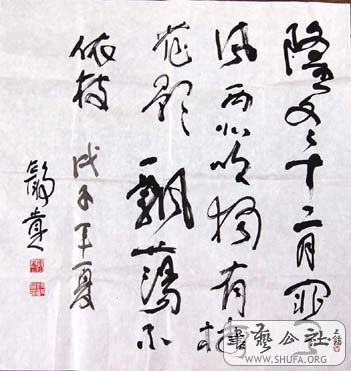 隆冬十二月寒
風西北吹獨有梅
花飄蕩不
依枝 戊子年夏
書藝公社
WWW.SHUFA.ORG